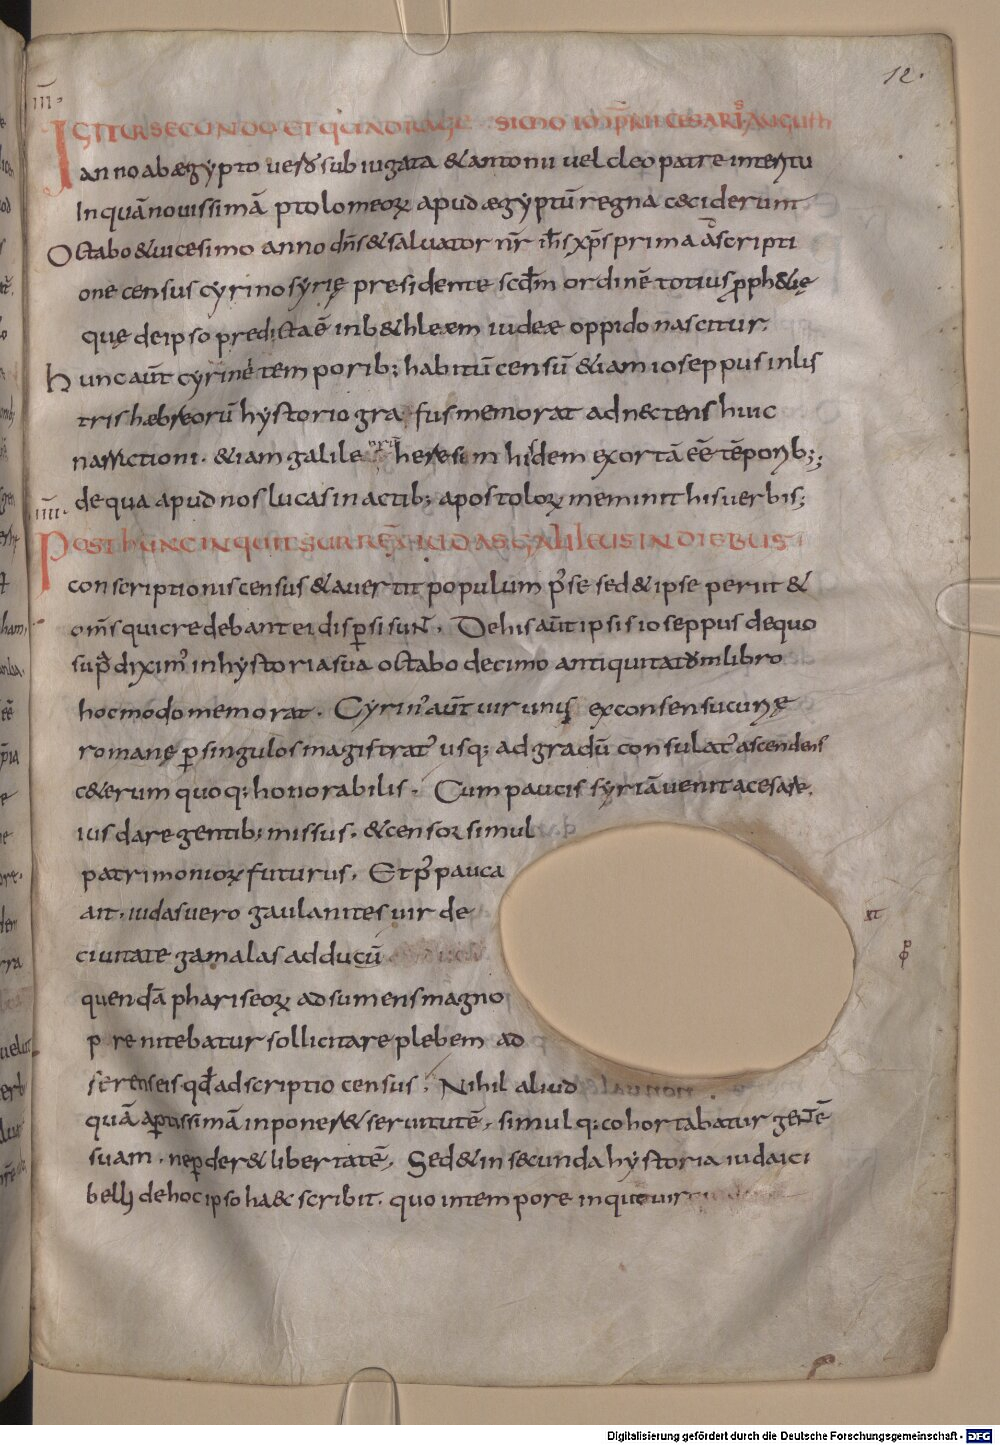 12.
III.
IGITUR SECUNDO ET QUADRAGE SIMO IMP̄RII CESARIS AUGUSTI
anno ab ægypto uero subiugata & antonii uel cleopatre interitu
In quā nouissimā ptolomeoꝝ apud ægyptū regna ceciderunt
Octabo & uicesimo anno dn̄s & saluator nr̄ ih̄s xp̄s prima ascripti
one census cyrino syrię presidente scd̄m ordinē totius ꝓph&ię
quę de ipso predicta ē in b&hleæm iudeæ oppido nascitur.
hunc aūt cyrinė temporib; habitū censū &iam ioseppus inlis
tris hæbreorū hystoriogra fus memorat adnectens huic
narrctioni. &iam galile oru heresem hisdem exortā eē̄ tēporib;;
IIII.
de qua apud nos lucas in actib; apostoloꝝ meminit his uerbis;
POST HUNC INQUIT SURREX̄ IUDAS GALILEUS IN DIEBUS
conscriptionis census & auertit populum p̄ se sed & ipse periit &
om̄s qui credebant ei disꝑsi suN̄. De his aūt ipsis ioseppus de quo
sup̄ dixim' in hystoria sua octabo decimo antiquitatum libro
hoc modo memorat. Cyrin' aūt uir unus ex consensu curię
romanę ꝑ singulos magistrat' usq; ad gradū consulat' ascendens
c&erum quoq; honorabilis. Cum paucis syriā uenit a cesare.
ius dare gentib; missus. & censor simul
patrimonioꝝ futurus. Et p̄ pauca
ait. iudas uero gaulanites uir de
ciuitate gamalas adducū
quendā phariseoꝝ adsumens magno
p re nitebatur sollicitare plebem ad
serens eis qd̄ adscriptio census. Nihil aliud
quā aꝑtissimā inponer& seruitutē. simulq; cohortabatur gentē
suam. ne ꝑder& libertatē. Sed & in secunda hystoria iudaici
belli de hoc ipso ha&c scribit. quo in tempore inquit uir
Digitalisierung gefördert durch die Deutsche Forschungsgemeinschaft - DFG